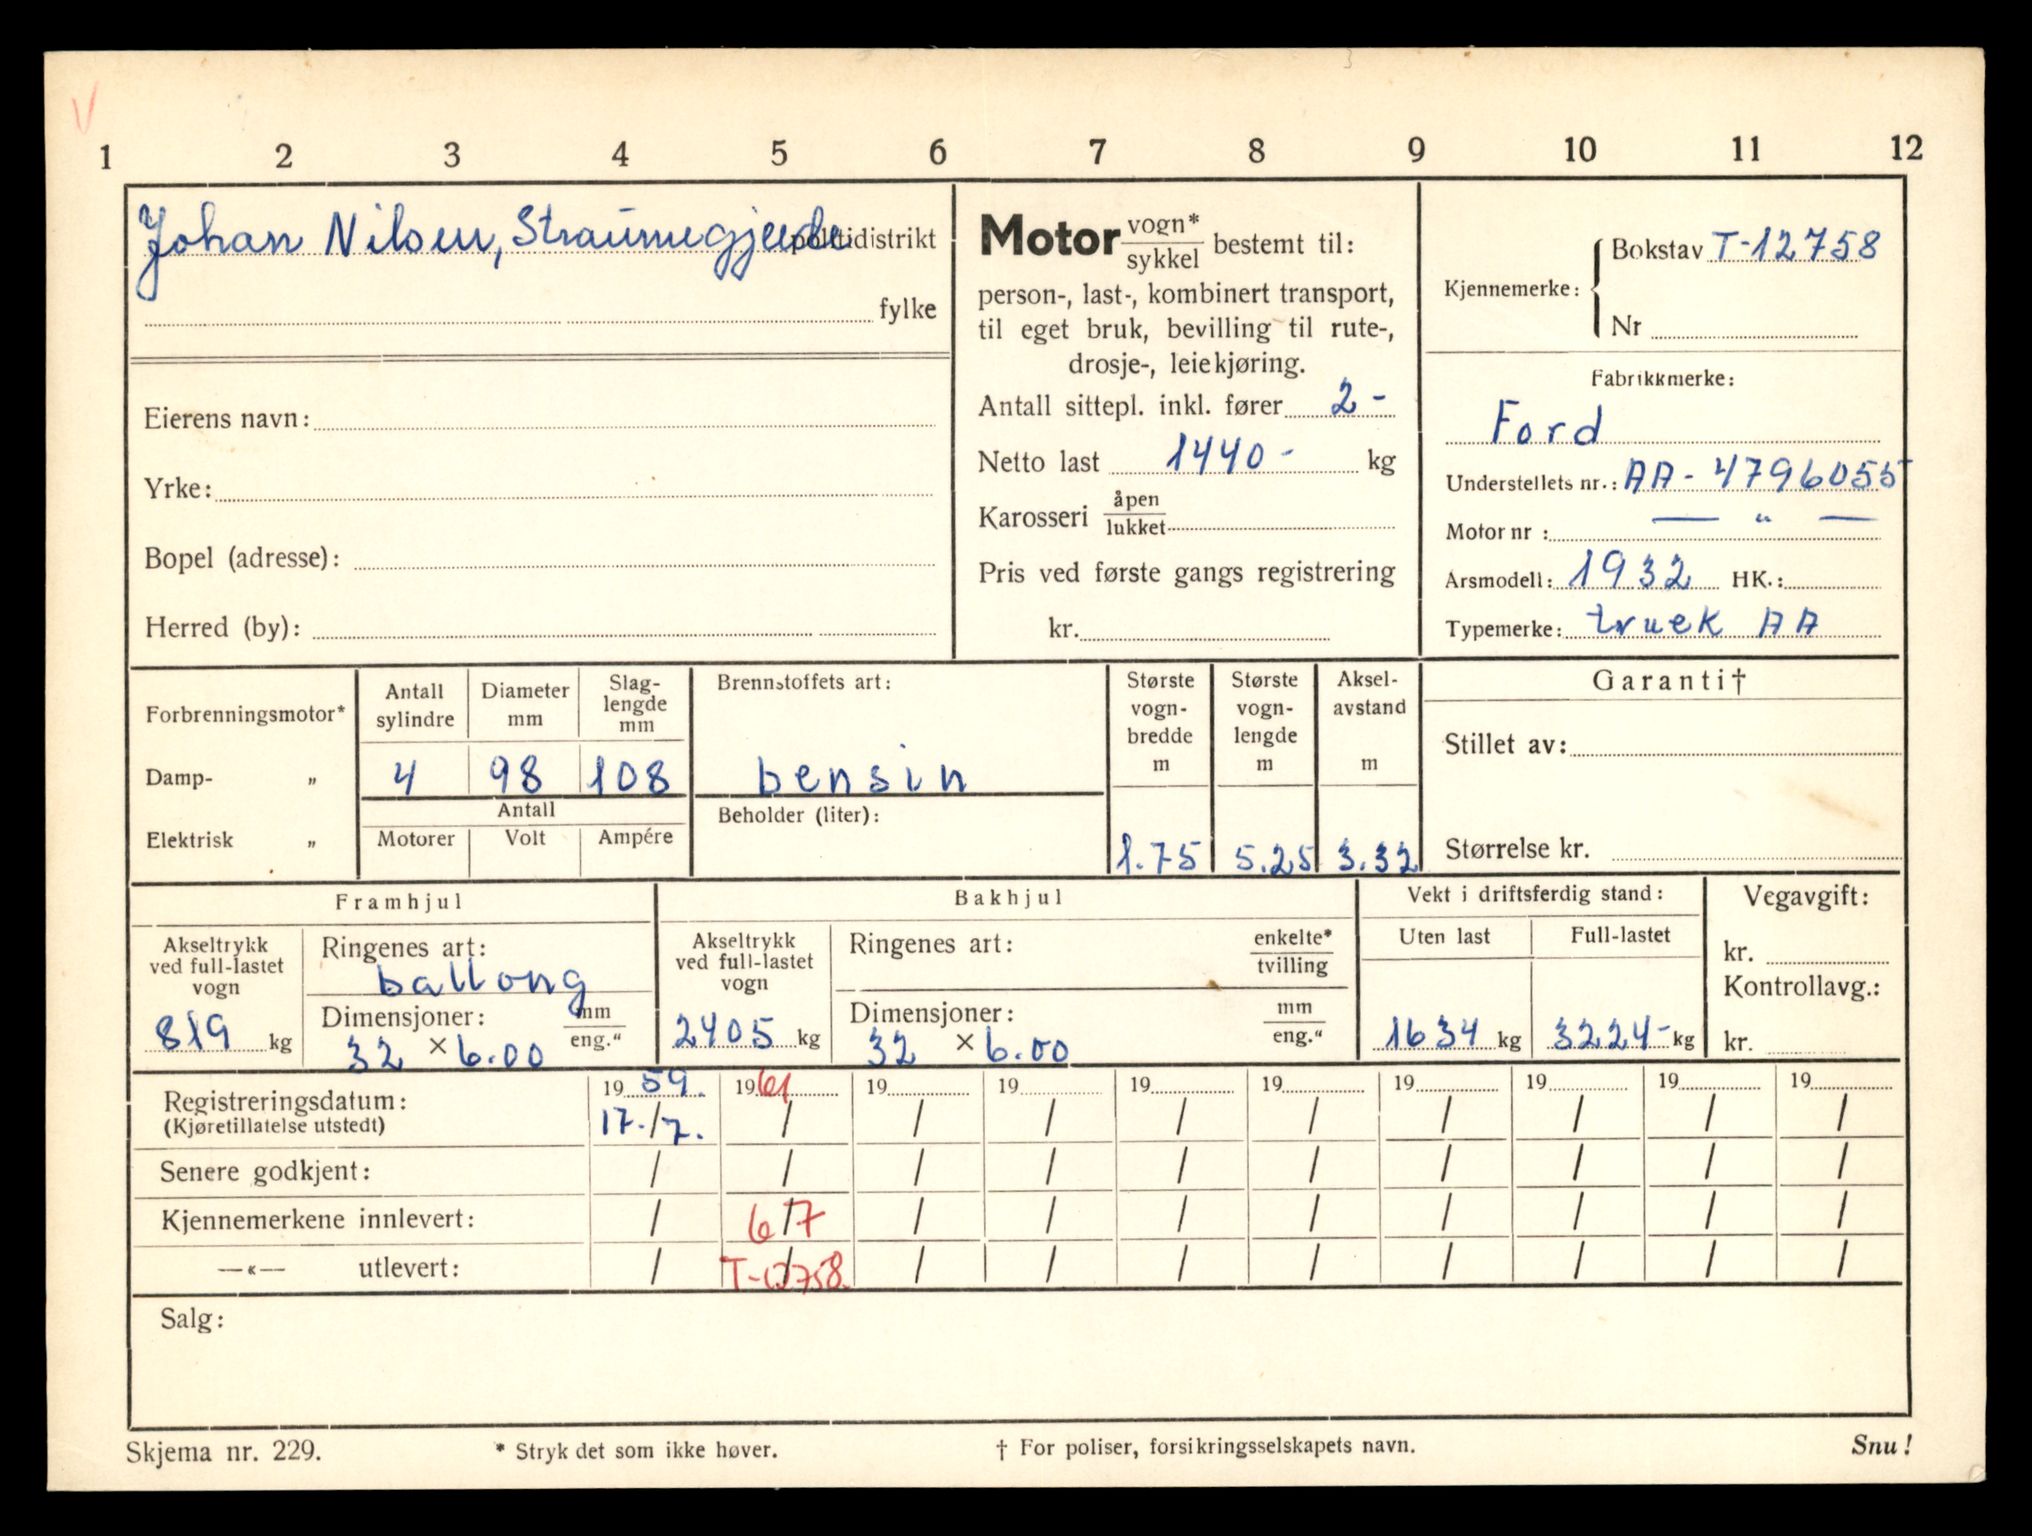 1 2 3 4 5 6 7 8 9 10 11 12
Johan Nilsen, Straumegjerde politidistrikt
fylke
Eierens navn:
Yrke:
Bopel (adresse):
Herred (by):
Motor vogn* / sykkel bestemt til:
person-, last-, kombinert transport,
til eget bruk, bevilling til rute-,
drosje-, leiekjøring.
Antall sittepl. inkl. fører 2-
Netto last 1440- kg
Karosseri åpen / lukket
Pris ved første gangs registrering
kr.
Kjennemerke: Bokstav T-12758
Nr
Fabrikkmerke:
Ford
Understellets nr.: AA-4796055
Motor nr : — " —
Årsmodell: 1932 HK.:
Typemerke: truck AA
Forbrenningsmotor*
Damp- „
Elektrisk „
Antall sylindre
4
Diameter mm
98
Slag-lengde mm
108
Antall
Motorer Volt Ampére
Brennstoffets art:
bensin
Beholder (liter):
Største vogn-bredde m
1.75
Største vogn-lengde m
5.25
Aksel-avstand m
3.32
Garanti†
Stillet av:
Størrelse kr.
Framhjul
Akseltrykk
ved full-lastet
vogn
819 kg
Ringenes art:
ballong
Dimensjoner: mm / eng."
32 × 6.00
Bakhjul
Akseltrykk
ved full-lastet
vogn
2405 kg
Ringenes art: enkelte* / tvilling
Dimensjoner: mm / eng."
32 × 6.00
Vekt i driftsferdig stand:
Uten last Full-lastet
1634 kg 3224- kg
Vegavgift:
kr.
Kontrollavg.:
kr.
19 59. 19 61 19 19 19 19 19 19 19 19
Registreringsdatum: 17./7. / / / / / / / / /
(Kjøretillatelse utstedt)
Senere godkjent: / / / / / / / / / /
Kjennemerkene innlevert: / 6/7 / / / / / / / /
—«— utlevert: / T-12758. / / / / / / / /
Salg:
Skjema nr. 229. * Stryk det som ikke høver. † For poliser, forsikringsselskapets navn. Snu!